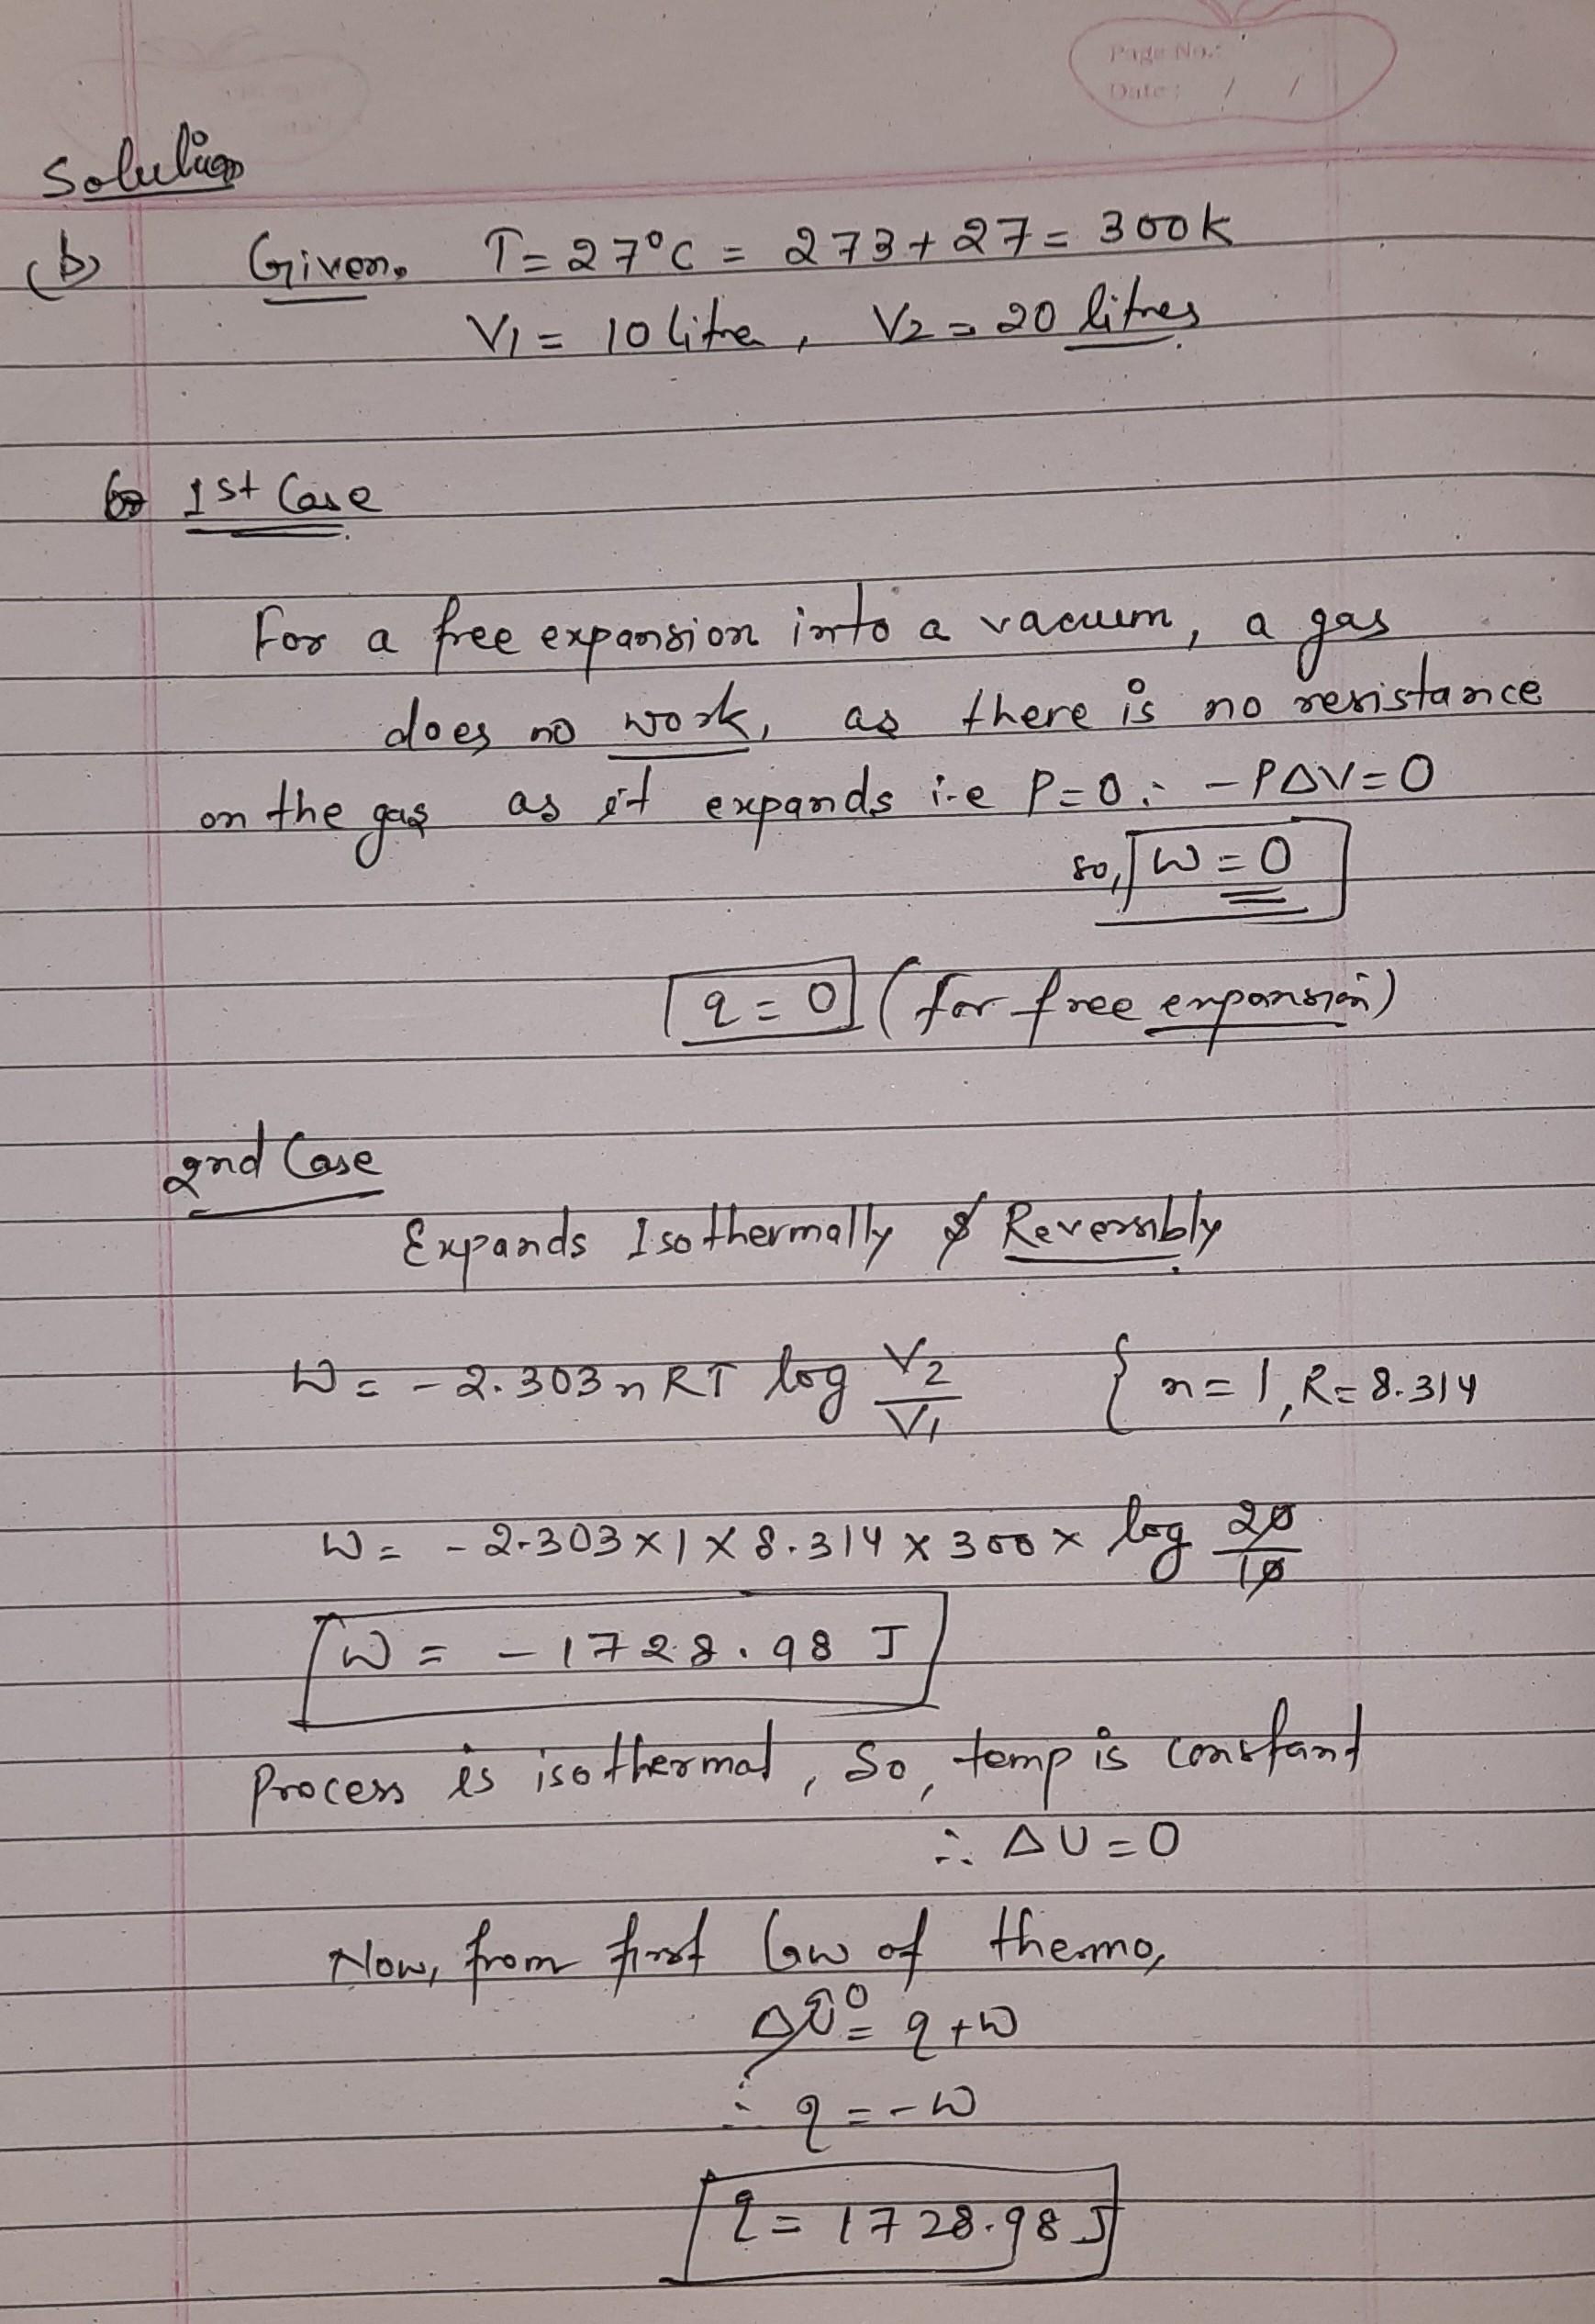 Page No.:
Date: / /
Solution
(b) Given. T = 27°C = 273 + 27 = 300K
V1 = 10 litre, V2 = 20 litres
1st Case
For a free expansion into a vacuum, a gas
does no work, as there is no resistance
on the gas as it expands i.e P=0 ∴ -PΔV=0
so, W = 0
q = 0 (for free expansion)
2nd Case
Expands Isothermally & Reversibly
W = -2.303 nRT log V2/V1 { n=1, R=8.314
W = -2.303 × 1 × 8.314 × 300 × log 20/10
W = -1728.98 J
Process is isothermal, So, temp is constant
∴ ΔU = 0
Now, from first law of thermo,
ΔU⁰ = q + W
∴ q = -W
q = 1728.98 J